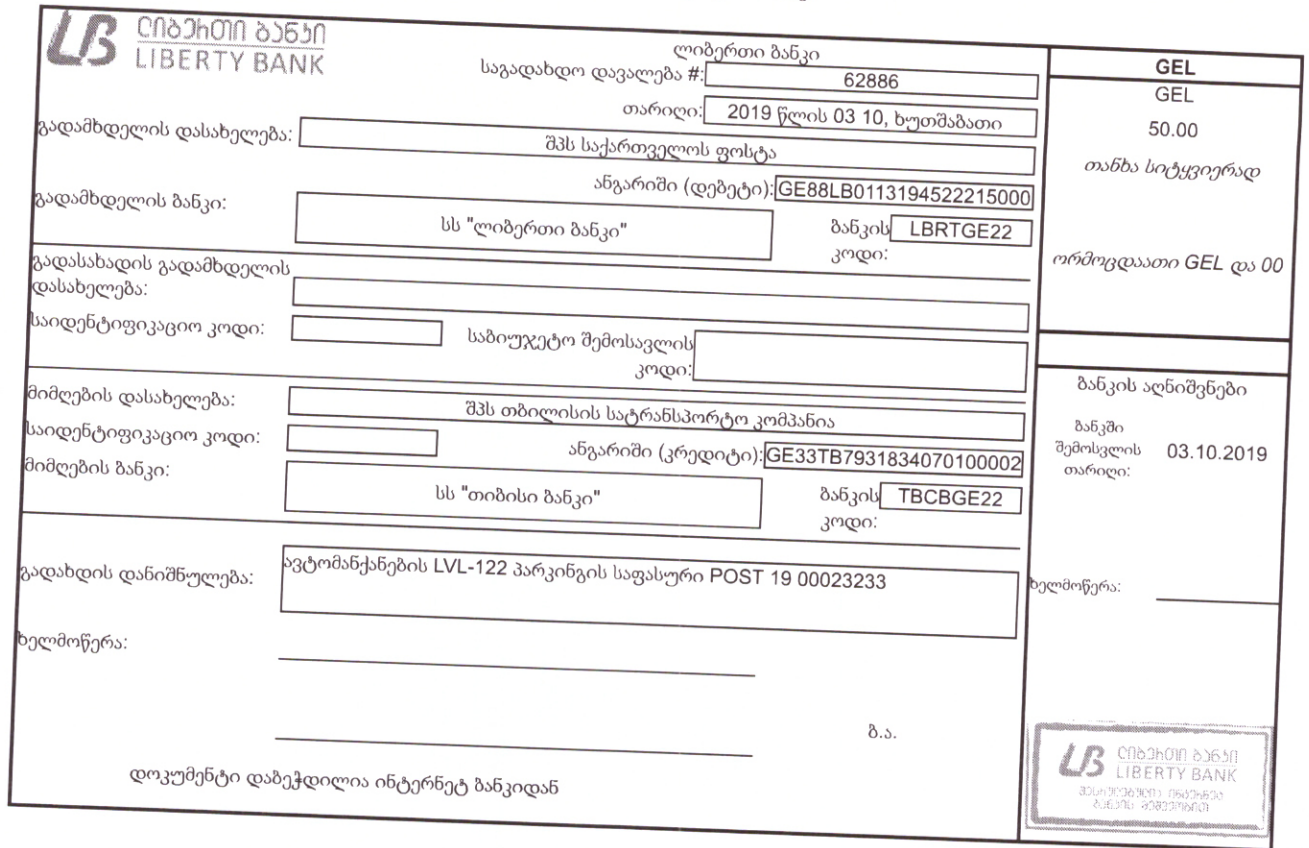 ლიბერთი ბანკი
LIBERTY BANK
ლიბერთი ბანკი
საგადახდო დავალება #: 62886
თარიღი: 2019 წლის 03 10, ხუთშაბათი
გადამხდელის დასახელება: შპს საქართველოს ფოსტა
ანგარიში (დებეტი): GE88LB0113194522215000
გადამხდელის ბანკი: სს "ლიბერთი ბანკი" ბანკის კოდი: LBRTGE22
გადასახადის გადამხდელის
დასახელება:
საიდენტიფიკაციო კოდი: საბიუჯეტო შემოსავლის
კოდი:
მიმღების დასახელება: შპს თბილისის სატრანსპორტო კომპანია
საიდენტიფიკაციო კოდი: ანგარიში (კრედიტი): GE33TB7931834070100002
მიმღების ბანკი: სს "თიბისი ბანკი" ბანკის კოდი: TBCBGE22
გადახდის დანიშნულება: ავტომანქანების LVL-122 პარკინგის საფასური POST 19 00023233
ხელმოწერა:
ბ.ა.
დოკუმენტი დაბეჭდილია ინტერნეტ ბანკიდან
GEL
GEL
50.00
თანხა სიტყვიერად
ორმოცდაათი GEL და 00
ბანკის აღნიშვნები
ბანკში
შემოსვლის 03.10.2019
თარიღი:
ხელმოწერა:
ლიბერთი ბანკი
LIBERTY BANK
შესრულებულია ინტერნეტ
ბანკის მეშვეობით